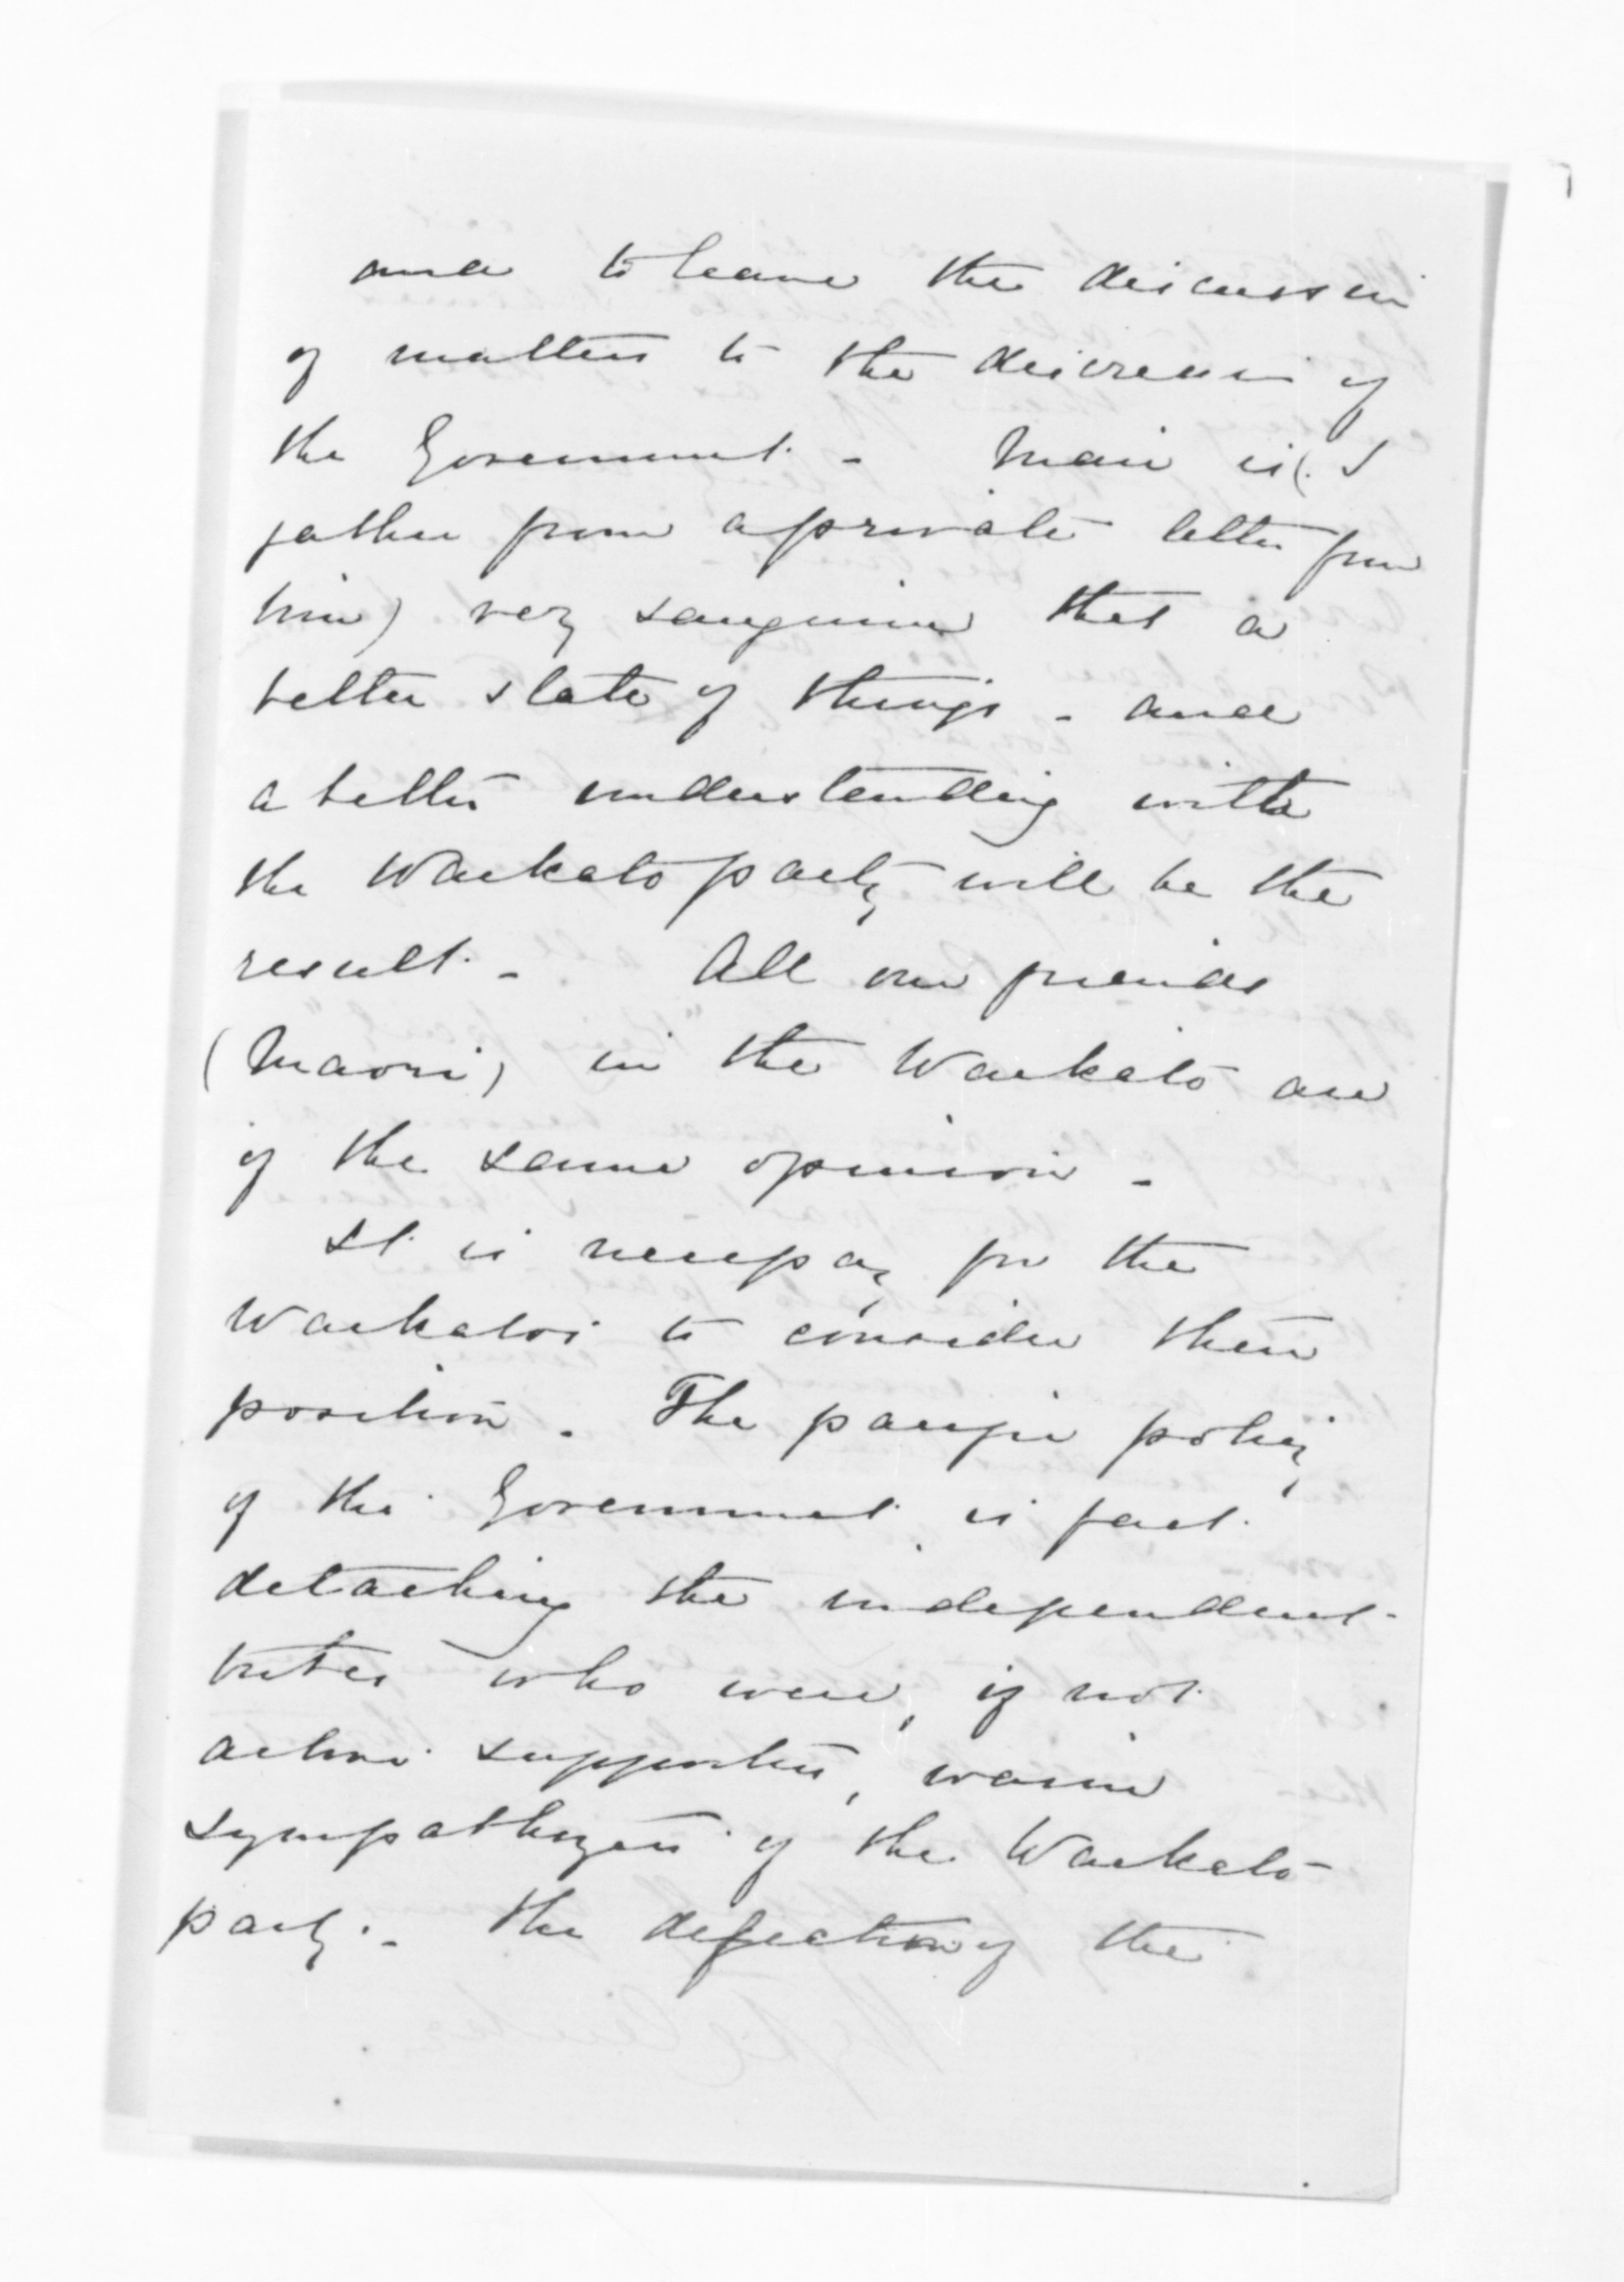 and to leave the discussion
of matters to the discretion of
the Government. - Mair is (. I
gather from a private letter from
him) very sanguine that a
better state of things - and
a better understanding with
the Waikato party will be the
result. - All our friends
(Maori) in the Waikato are
of the same opinion -
It is necessary for the
Waikatos to consider their
position. The pacific policy
of the Government is fast
detaching the independent
tribes who were, if not
active supporters, warm
sympathizers of the Waikato
party. - The defection of the